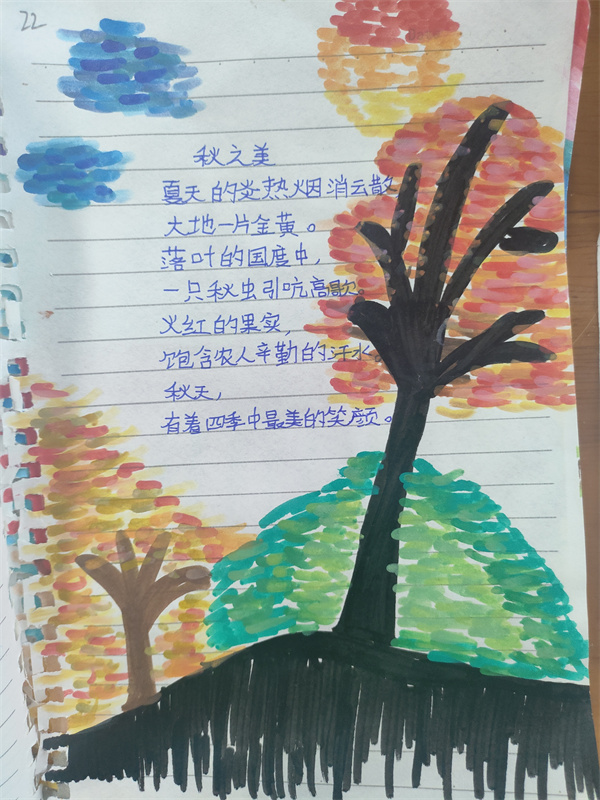 22
秋之美
夏天的炎热烟消云散
大地一片金黄。
落叶的国度中,
一只秋虫引吭高歌。
火红的果实,
饱含农人辛勤的汗水
秋天,
有着四季中最美的笑颜。